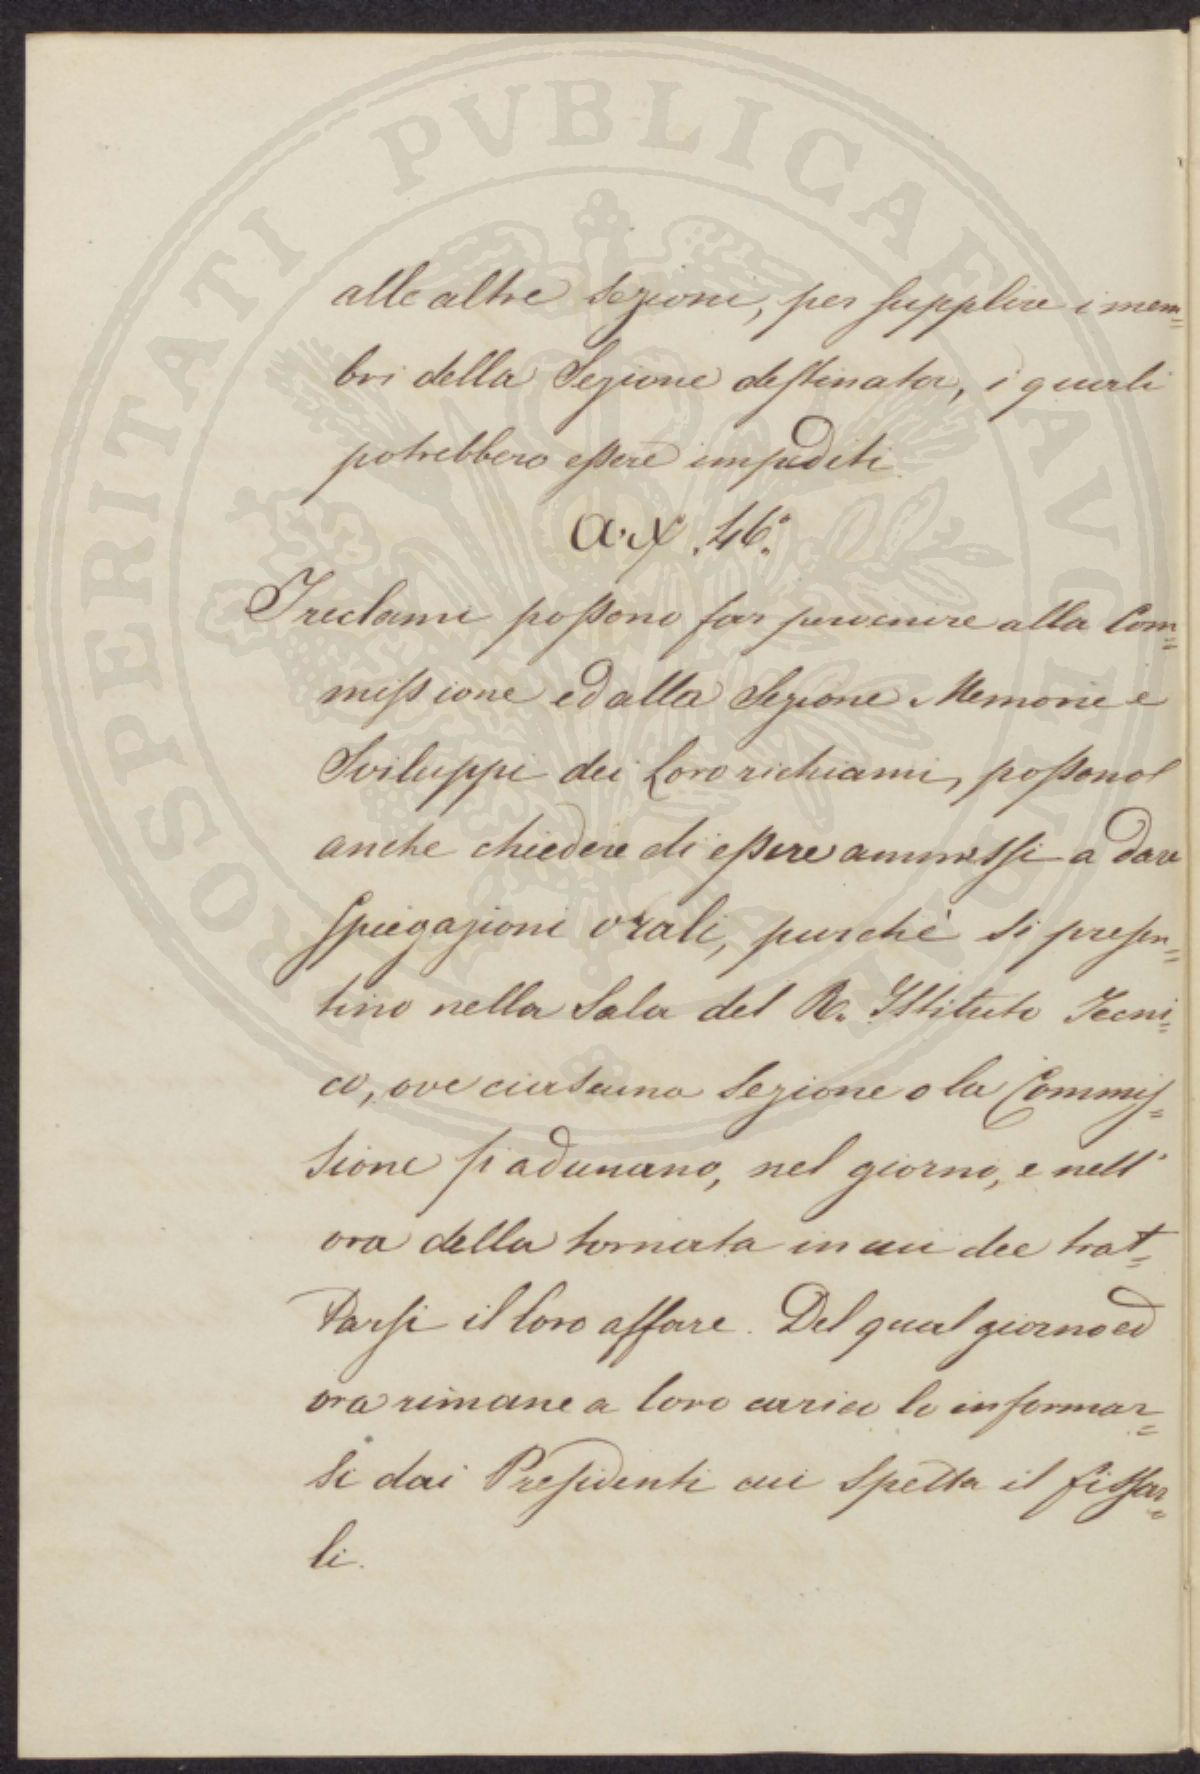 PROSPERITATI PVBLICAE AVGENDAE
alle altre Sezioni, per supplire i mem=
bri della Sezione destinata, i quali
potrebbero essere impediti
Art. 46.°
I reclami possono far pervenire alla Com=
missione ed alla Sezione Memorie e
Sviluppi dei loro richiami, possono
anche chiedere di essere ammessi a dare
spiegazioni orali, purchè si presen=
tino nella Sala del R. Istituto Tecni=
co, ove ciascuna Sezione o la Commis=
sione si adunano, nel giorno, e nell'
ora della tornata in cui dee trat=
tarsi il loro affare. Del qual giorno ed
ora rimane a loro carico lo informar=
si dai Presidenti cui spetta il fissar=
li.